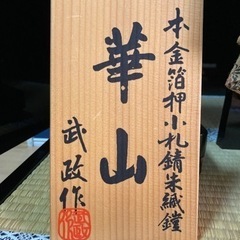 本金箔押小札錆朱縅鎧
華山
武政作